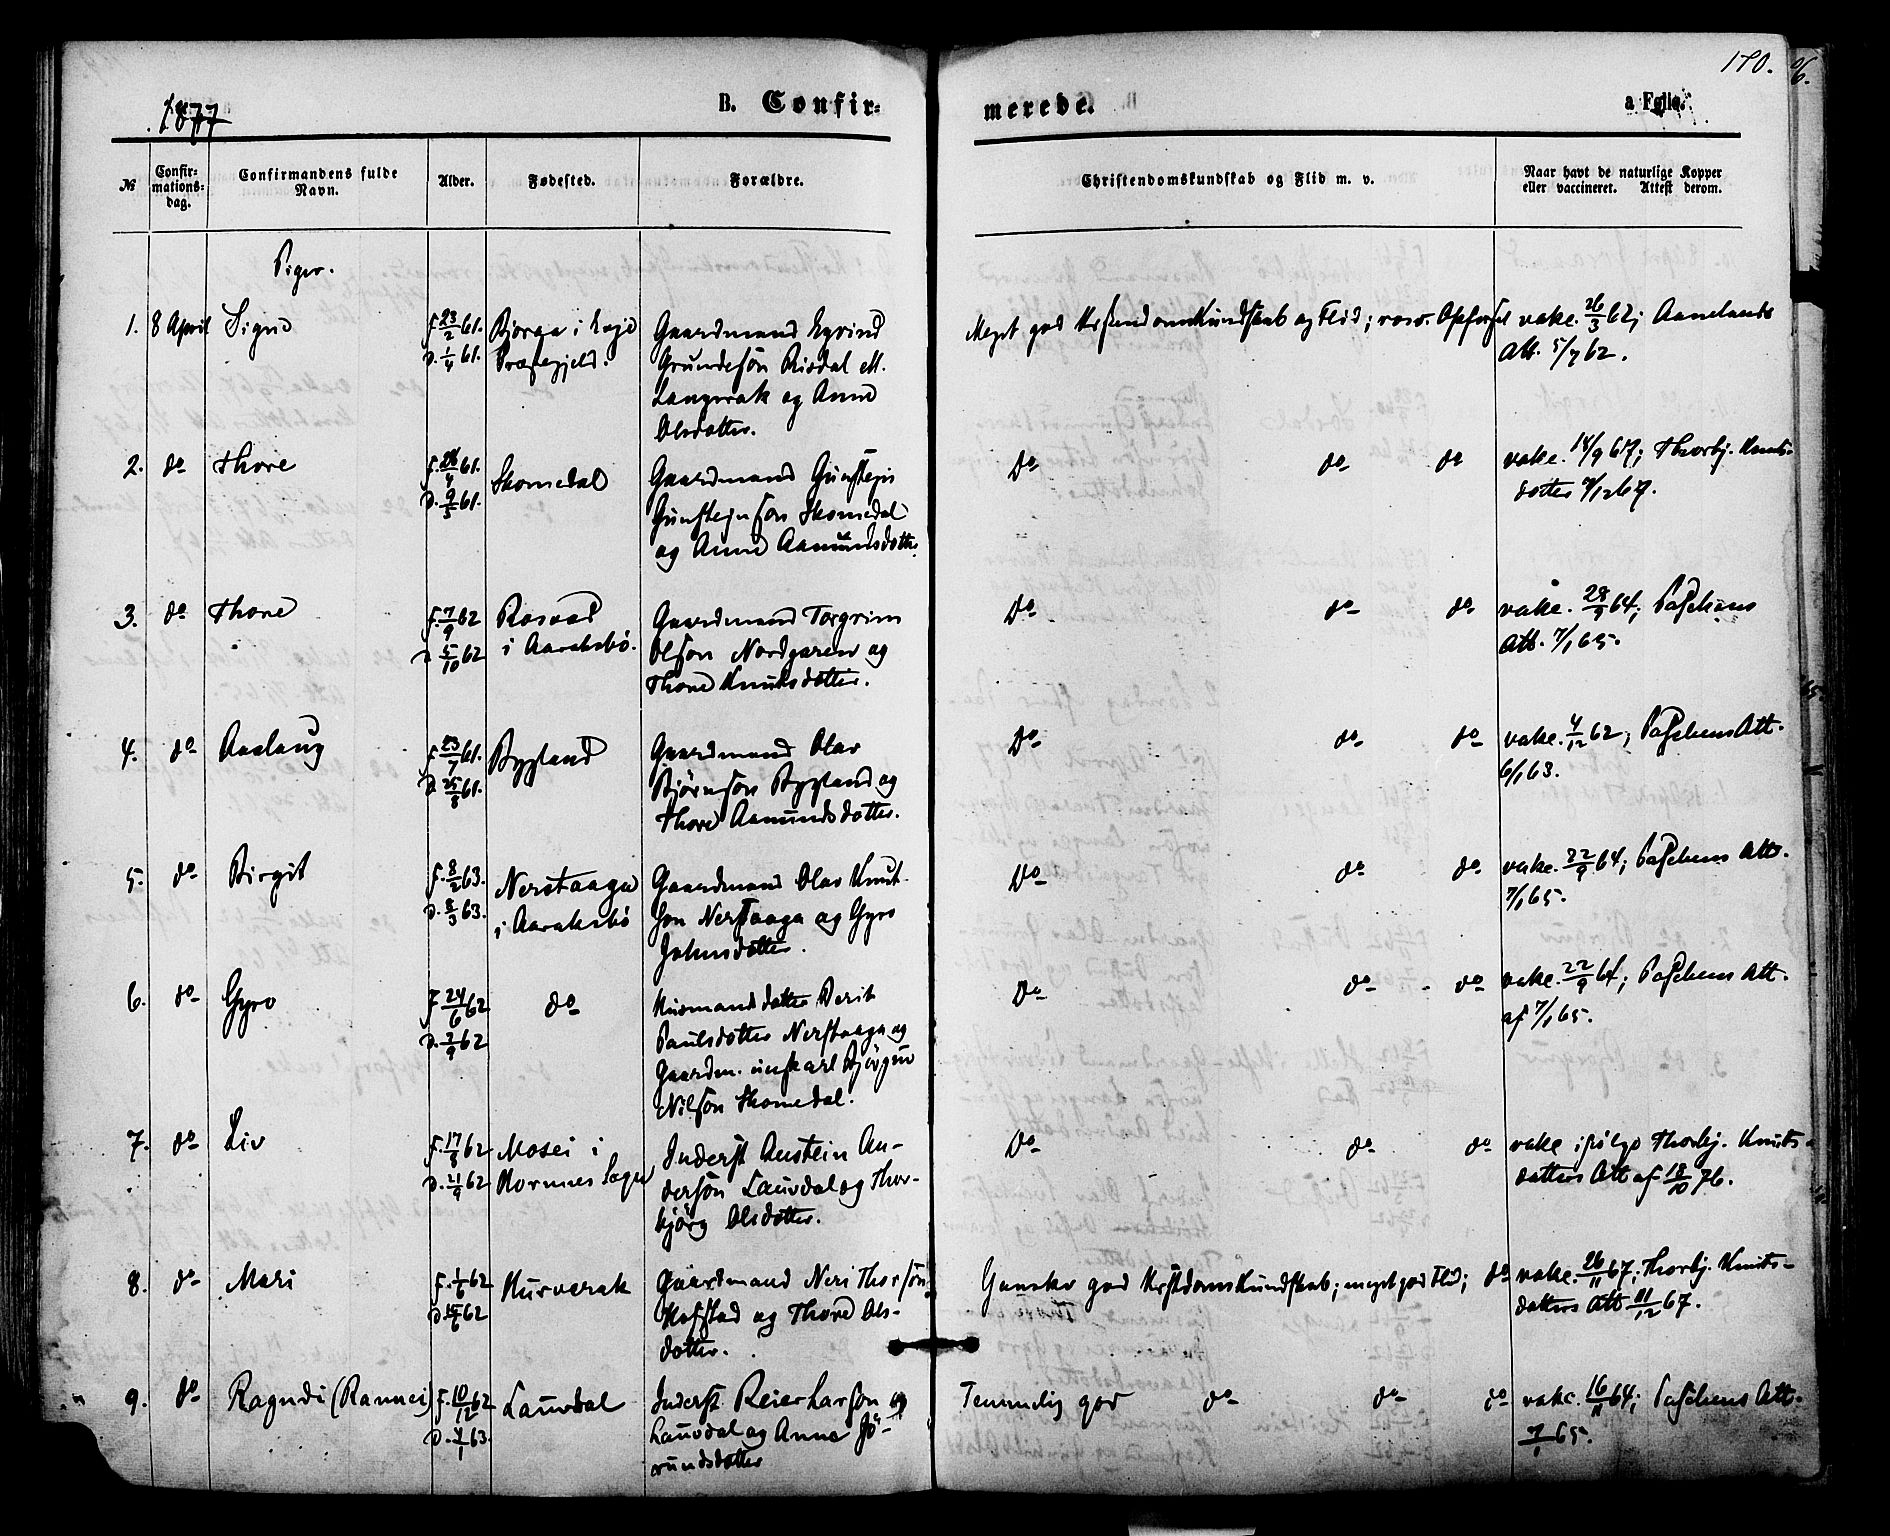 170.
1877
B. Confir-
merede.
a Følie.
№
Confir-
mations-
dag.
Confirmandens fulde
Navn.
Alder.
Fødested.
Forældre.
Christendomskundskab og Flid m. v.
Naar havt de naturlige Kopper
eller vaccineret. Attest derom.
Piger.
1. 8 April Signe
f. 23/2 61.
d. 1/4 61.
Præstegjeld.
Gaardmand Eyvind
Grundesøn Risdal ell.
Langerak og Anne
Olsdatter.
Meget god Kristendomskundskab og Flid; rosv. Opførsel
vakc. 26/3 62; Aanelands
Att. 5/7 62.
2. do Thore
61.
d. 9/5 61.
Skomedal
Gaardmand Gunstein
Gunsteinsøn Skomedal
og Anne Aamundsdatter.
Do do do
vakc. 14/9 67; Thorbj. Knuts-
datter 67.
3. do Thone
f. 7/9 62
d. 5/10 62
Rosvad
i Aaraksbø.
Gaardmand Torgrim
Olsøn Nordgaren og
Thone Knutsdatter.
Do do do
vakc. 28/9 64; Paschens
Att. 7/1 65.
4. do Aaslaug
f. 23/7 61.
d. 25/8 61.
Bygland
Gaardmand Olav
Bjørnsøn Bygland og
Thore Aamundsdatter.
Do do do
vakc. 4/12 62; Paschens Att.
6/1 63.
5. do Birgit
f. 8/2 63.
d. 8/3 63.
Nerstaaga
i Aaraksbø
Gaardmand Olav Knut-
søn Nerstaaga og Gyro
Johnsdatter.
Do do do
vakc. 22/9 64; Paschens Att.
7/1 65.
6. do Gyro
f. 24/6 62
d. 7/9 62
do
Husmandsdatter Berit
Paulsdatter Nerstaaga og
Gaardm. ungkarl Bjørgu
Nilsøn Skomedal.
Do do do
vakc. 22/9 64; Paschens Att.
af 7/1 65.
7. do Liv
f. 17/8 62
d. 21/9 62
Mosei i
Hornnes Sogn
Inderst Austein An-
dersøn Lauvdal og Thor-
bjørg Olsdatter.
Do do do
vakc ifølge Thorbj. Knuts-
datters Att af 18/10 76.
8. do Mari
f. 1/6 62
d. 15/6 62
Hurverak
Gaardmand Neri Thorsøn
Hofstad og Thore Ols-
datter.
Ganske god Krstdomskundskab; meget god Flid; do
vakc. 26/11 67; Thorbj. Knuts-
datters Att 11/12 67.
9. do Ragndi (Rannei)
f. 10/12 62
d. 4/1 63.
Lauvdal
Inderst Reier Larsøn
Lauvdal og Anne Jø-
rundsdatter
Temmelig god do do do
vakc. 16/11 64; Paschens Att.
7/1 65.